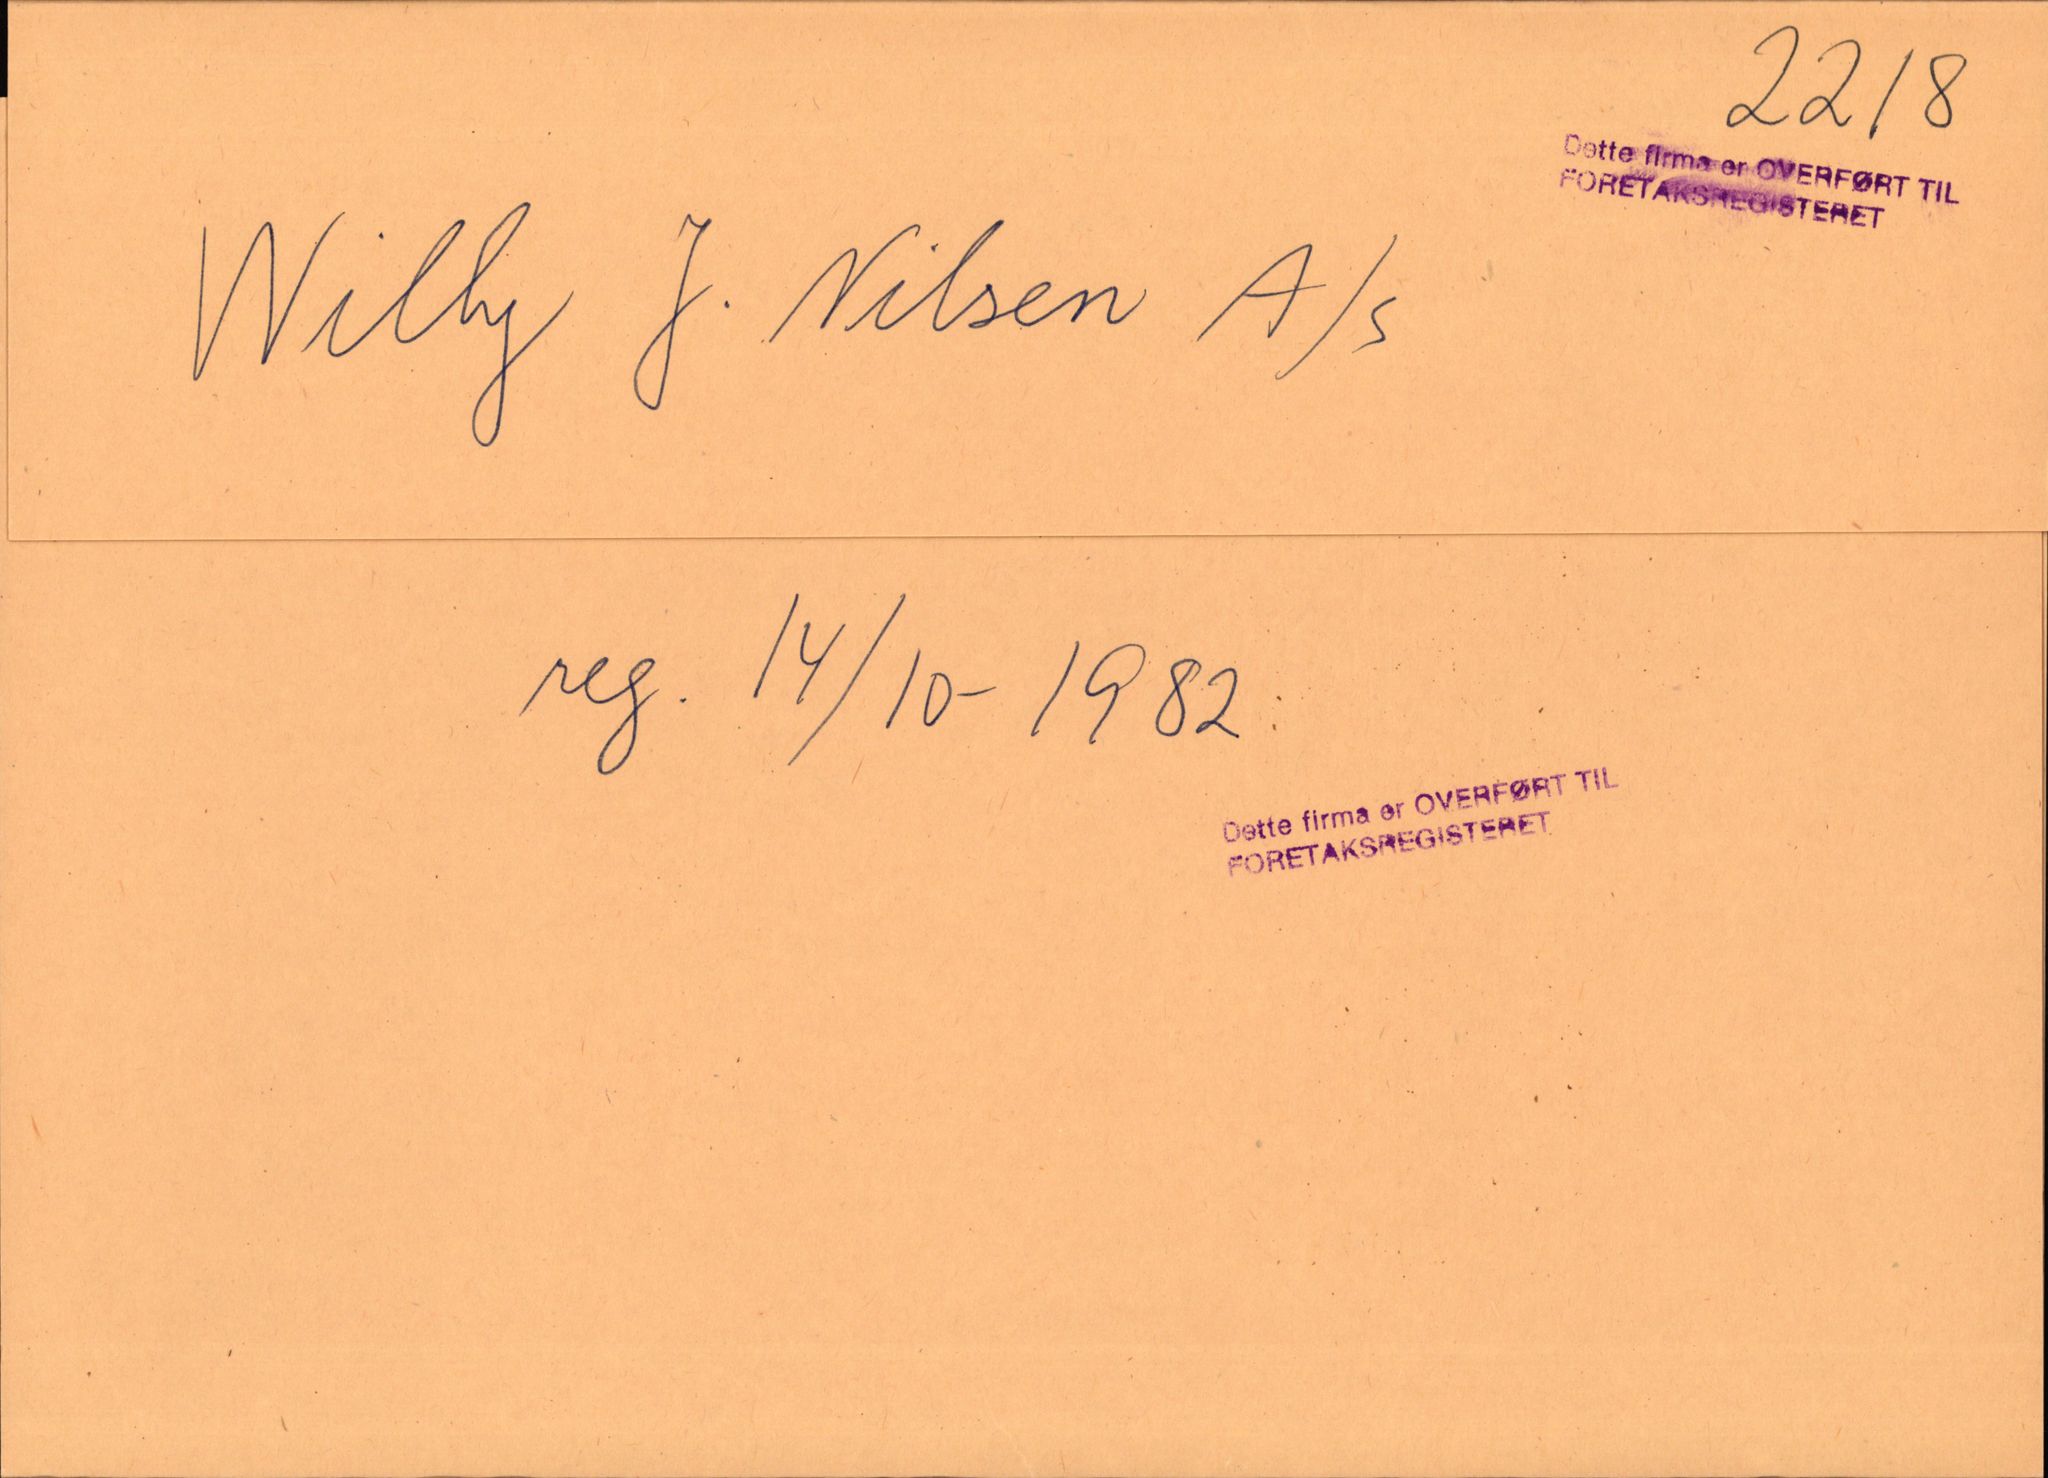 2218
Dette firma er OVERFØRT TIL
FORETAKSREGISTERET
Willy J. Nilsen A/s
reg. 14/10-1982.
Dette firma er OVERFØRT TIL
FORETAKSREGISTERET